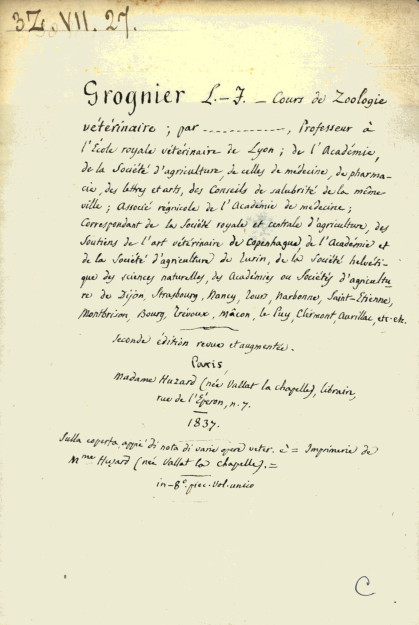 3Z. VII. 27.
Grognier L.-F. – Cours de Zoologie
vétérinaire ; par ------------, Professeur à
l'École royale vétérinaire de Lyon ; de l'Académie,
de la Société d'agriculture, de celles de médecine, de pharma-
cie, des lettres et arts, des Conseils de salubrité de la même
ville ; Associé régnicole de l'Académie de médecine ;
Correspondant de la Société royale et centrale d'agriculture, des
Soutiens de l'art vétérinaire de Copenhague, de l'Académie et
de la Société d'agriculture de Turin, de la Société helvéti-
que des sciences naturelles, des Académies ou Sociétés d'agricultu
re de Dijon, Strasbourg, Nancy, Tour, Narbonne, Saint-Etienne,
Montbrison, Bourg, Trévoux, Mâcon, le Puy, Clermont, Aurillac, etc. etc.
Seconde édition revue et augmentée.
Paris,
Madame Huzard (née Vallat la chapelle), libraire,
rue de l'Éperon, n. 7.
1837.
Sulla coperta, appiè di nota di varie opere veter. è = Imprimerie de
Mme Huzard (née Vallat la Chapelle). =
in-8º. picc. vol. unico
C